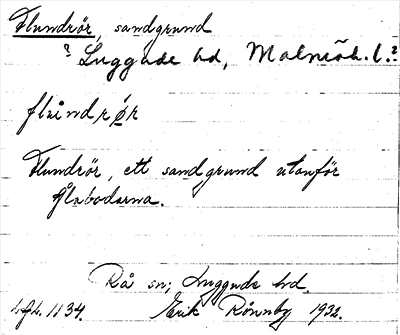 Flundrör, sandgrund
? Luggude hd, Malmöh. l.?
flúndrǿr
Flundrör, ett sandgrund utanför
Ålabodarna.
Rå sn; Luggude hd.
1934. Erik Rönnby 1932.